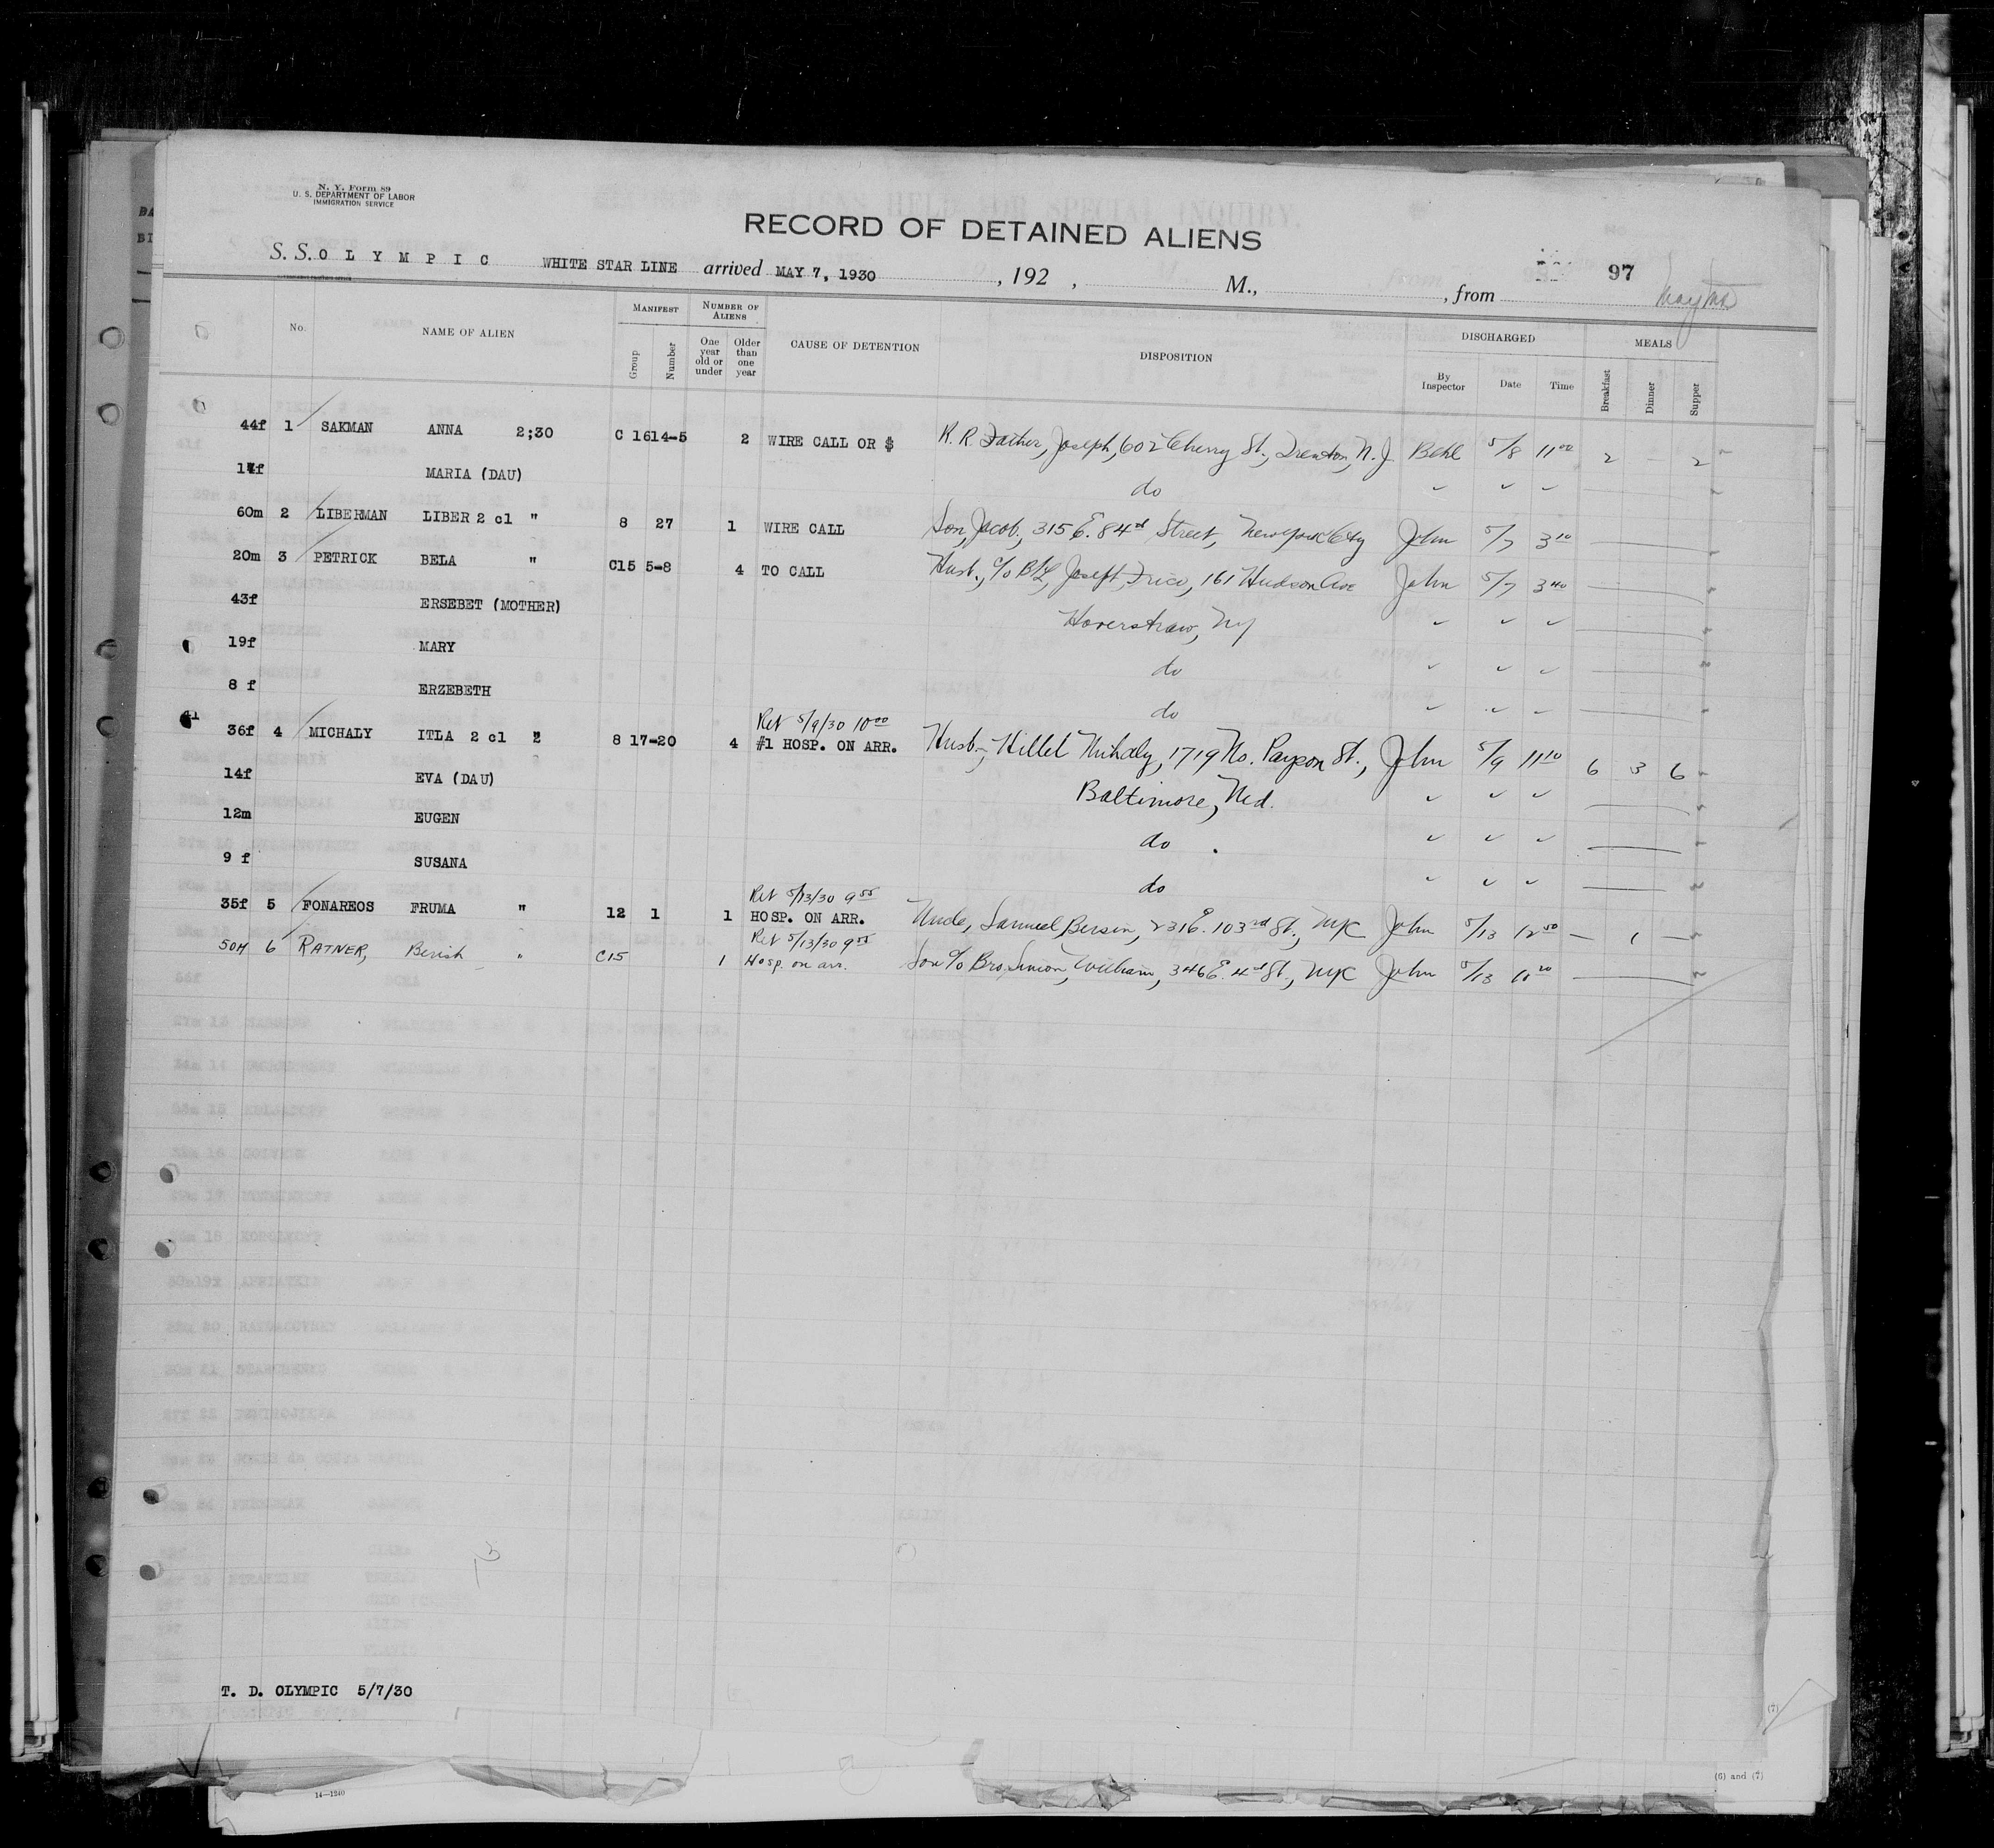 N. Y. Form 89
U. S. DEPARTMENT OF LABOR
IMMIGRATION SERVICE
RECORD OF DETAINED ALIENS
S. S. OLYMPIC WHITE STAR LINE arrived MAY 7, 1930 , 192 , M., , from 97
No. NAME OF ALIEN MANIFEST Group Number NUMBER OF ALIENS One year old or under Older than one year CAUSE OF DETENTION DISPOSITION DISCHARGED By Inspector Date Time MEALS Breakfast Dinner Supper
44f 1 SAKMAN ANNA 2;30 C 16 14-5 2 WIRE CALL OR $ R. R. Father, Joseph, 602 Cherry St., Trenton, N. J. Behl 5/8 11 00 2 - 2
14f MARIA (DAU) do
60m 2 LIBERMAN LIBER 2 cl " 8 27 1 WIRE CALL Son, Jacob, 315 E. 84 Street, New York City John 5/7 3 10
20m 3 PETRICK BELA " C15 5-8 4 TO CALL Husb., c/o B/L, Joseph, 161 Hudson Ave John 5/7 3 40
43f ERSEBET (MOTHER) Haverstraw, NY
19f MARY do
8 f ERZEBETH do
Ret 5/9/30 10 00
36f 4 MICHALY ITLA 2 cl 2 8 17-20 4 #1 HOSP. ON ARR. Husb., Hillel Mihaly, 1719 No. Payson St., John 5/9 11 10 6 3 6
14f EVA (DAU) Baltimore, Md.
12m EUGEN do
9 f SUSANA do
Ret 5/13/30 9 55
35f 5 FONAREOS FRUMA " 12 1 1 HOSP. ON ARR. Uncle, Samuel Berson, 231 E. 103rd St., NYC John 5/13 12 50 — 1 —
Ret 5/13/30 9 55
50M 6 RATNER, Berish " C15 1 Hosp. on arr. Son c/o Bro, Simion, William, 346 E. 4 St., NYC John 5/13 11 20
T. D. OLYMPIC 5/7/30
(7)
(6) and (7)
14—1240